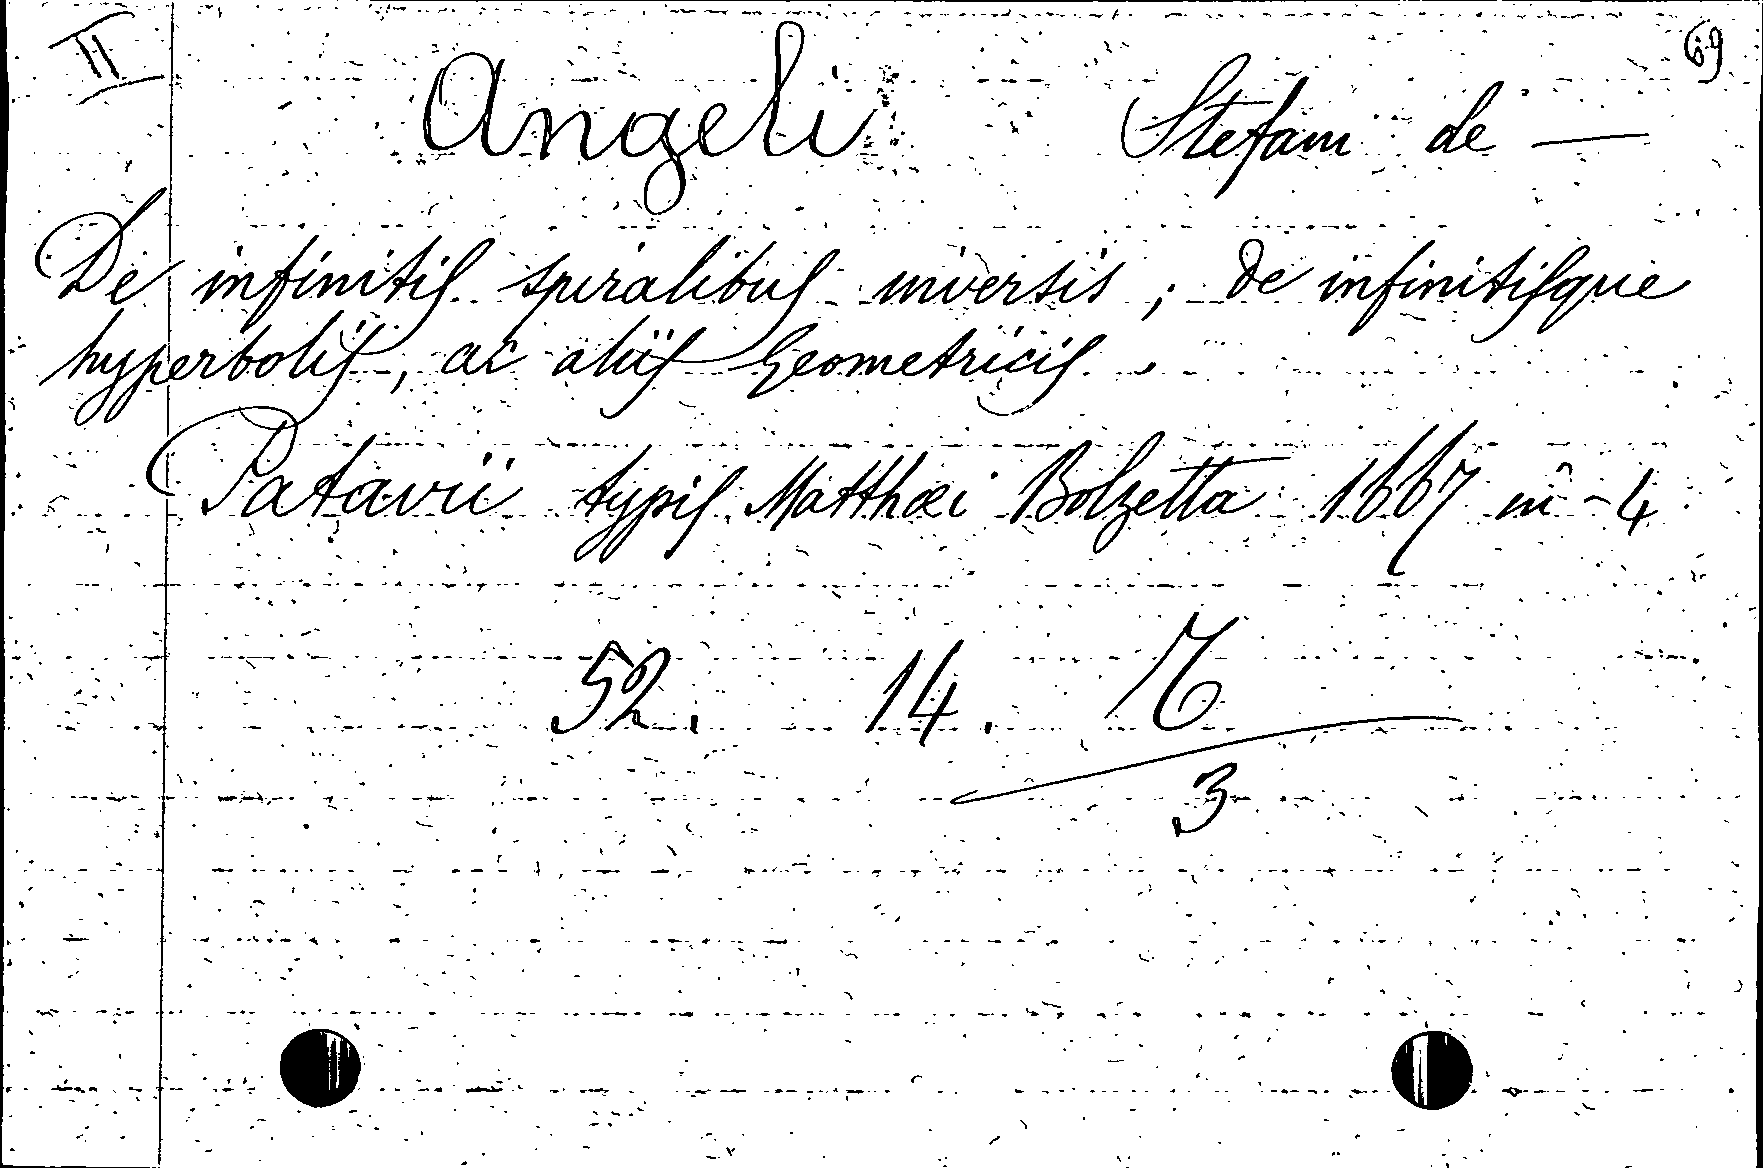 II
69
Angeli Stefani de —
De infinitis spiralibus inversis ; De infinitisque
hyperbolis, ac aliis Geometricis .
Patavii typis Matthæi Bolzetta 1667 in-4
52. 14.
3